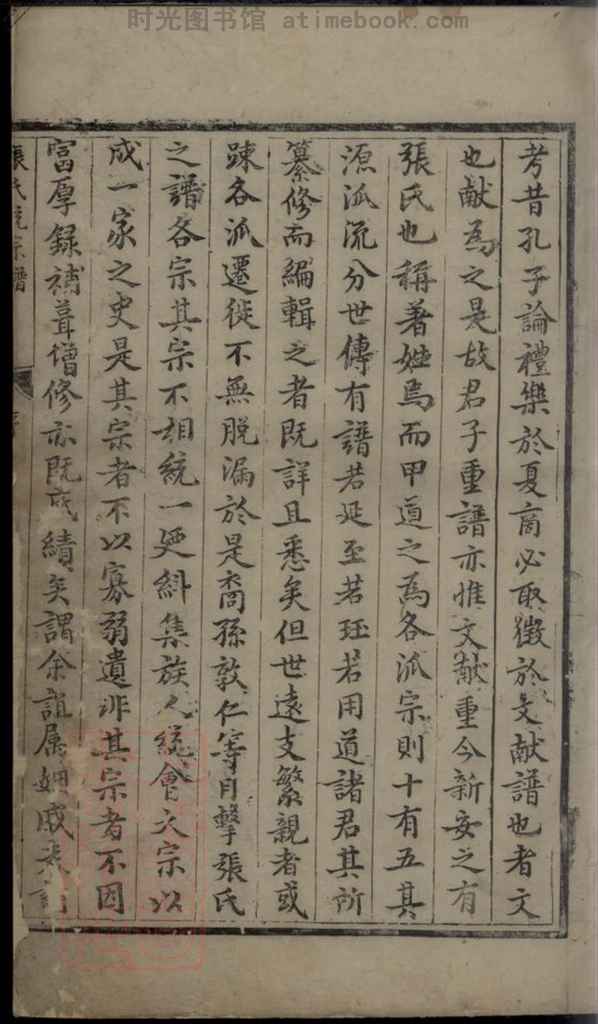 时光图书馆 atimebook.com
考昔孔子論禮樂於夏商必取徵於文献譜也者文
也献為之是故君子重譜亦惟文献重今新安之有
張氏也稱著姓焉而甲道之為各泒宗則十有五其
源泒流分世傳有譜若延至若珏若用道諸君其所
纂修而編輯之者既詳且悉矣但世遠支繁親者或
踈各泒遷徙不無脱漏於是裔孫敦仁等目擊張氏
之譜各宗其宗不相統一更糾集族人統會大宗以
成一家之史是其宗者不以寡弱遺非其宗者不因
富厚録補葺僧修亦既成績矣謂余誼屬姻戚来
張氏統宗譜 序